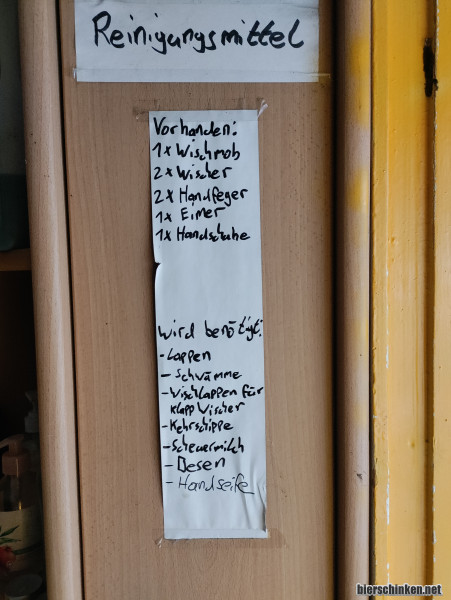 Reinigungsmittel
Vorhanden:
1x Wischmob
2x Wischer
2x Handfeger
1x Eimer
1x Handschuhe
wird benötigt:
- Lappen
- Schwämme
- Wischlappen für
Klapp Wischer
- Kehrschippe
- Scheuermilch
- Besen
- Handseife
bierschinken.net